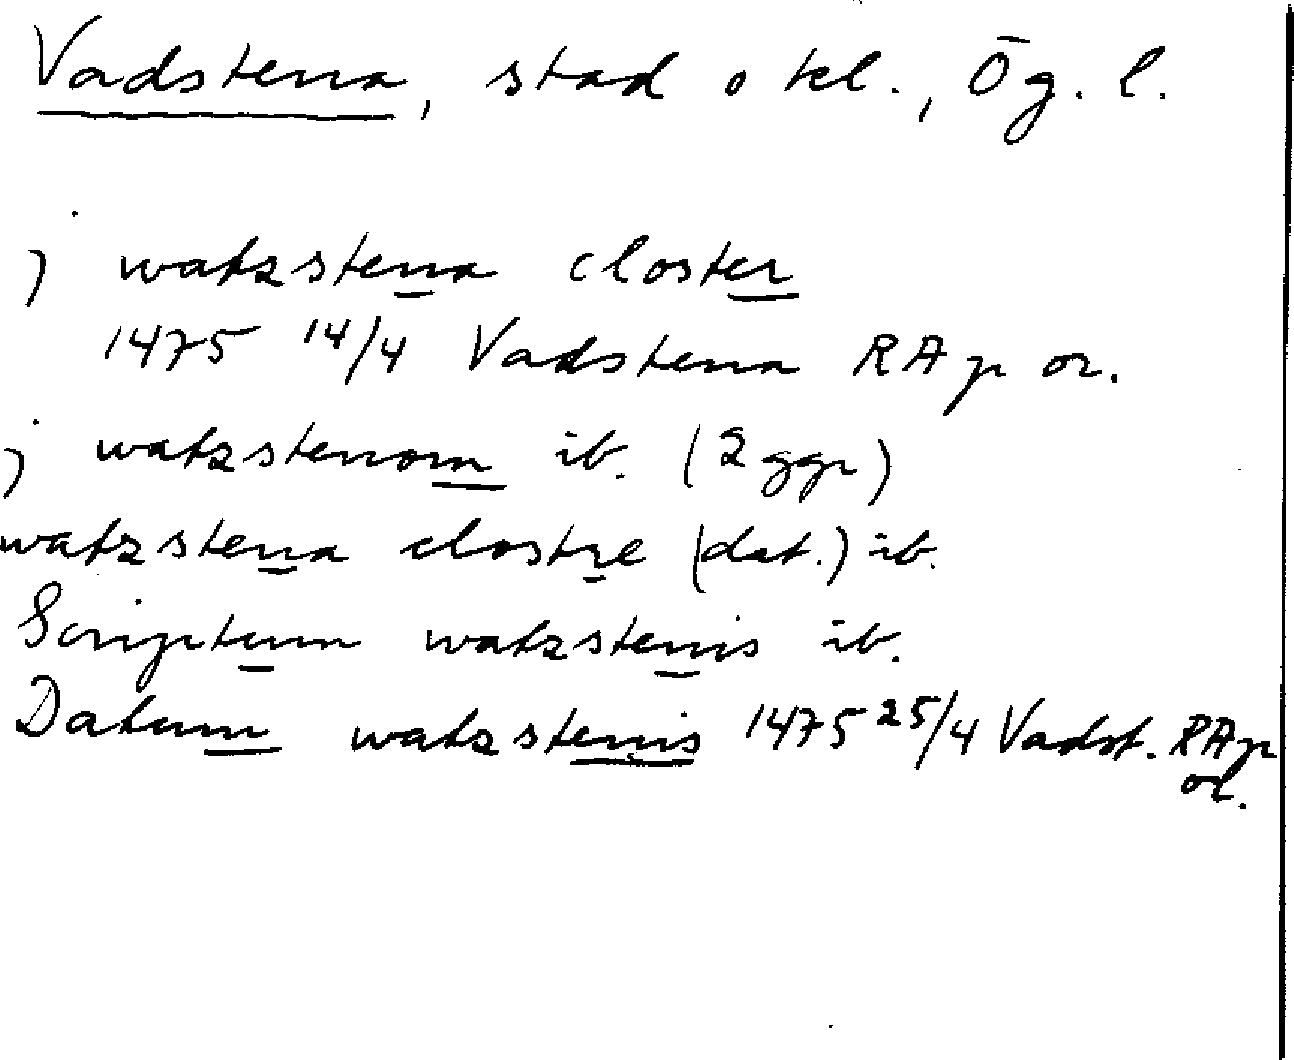 Vadstena, stad o kl., Ög. l.
j watzstena closter
1475 14/4 Vadstena RAp or.
j watzstenom ib. (2 ggr)
watzstena clostre (dat.) ib.
Scriptum watzstenis ib.
Datum watzstenis 1475 25/4 Vadst. RAp
or.